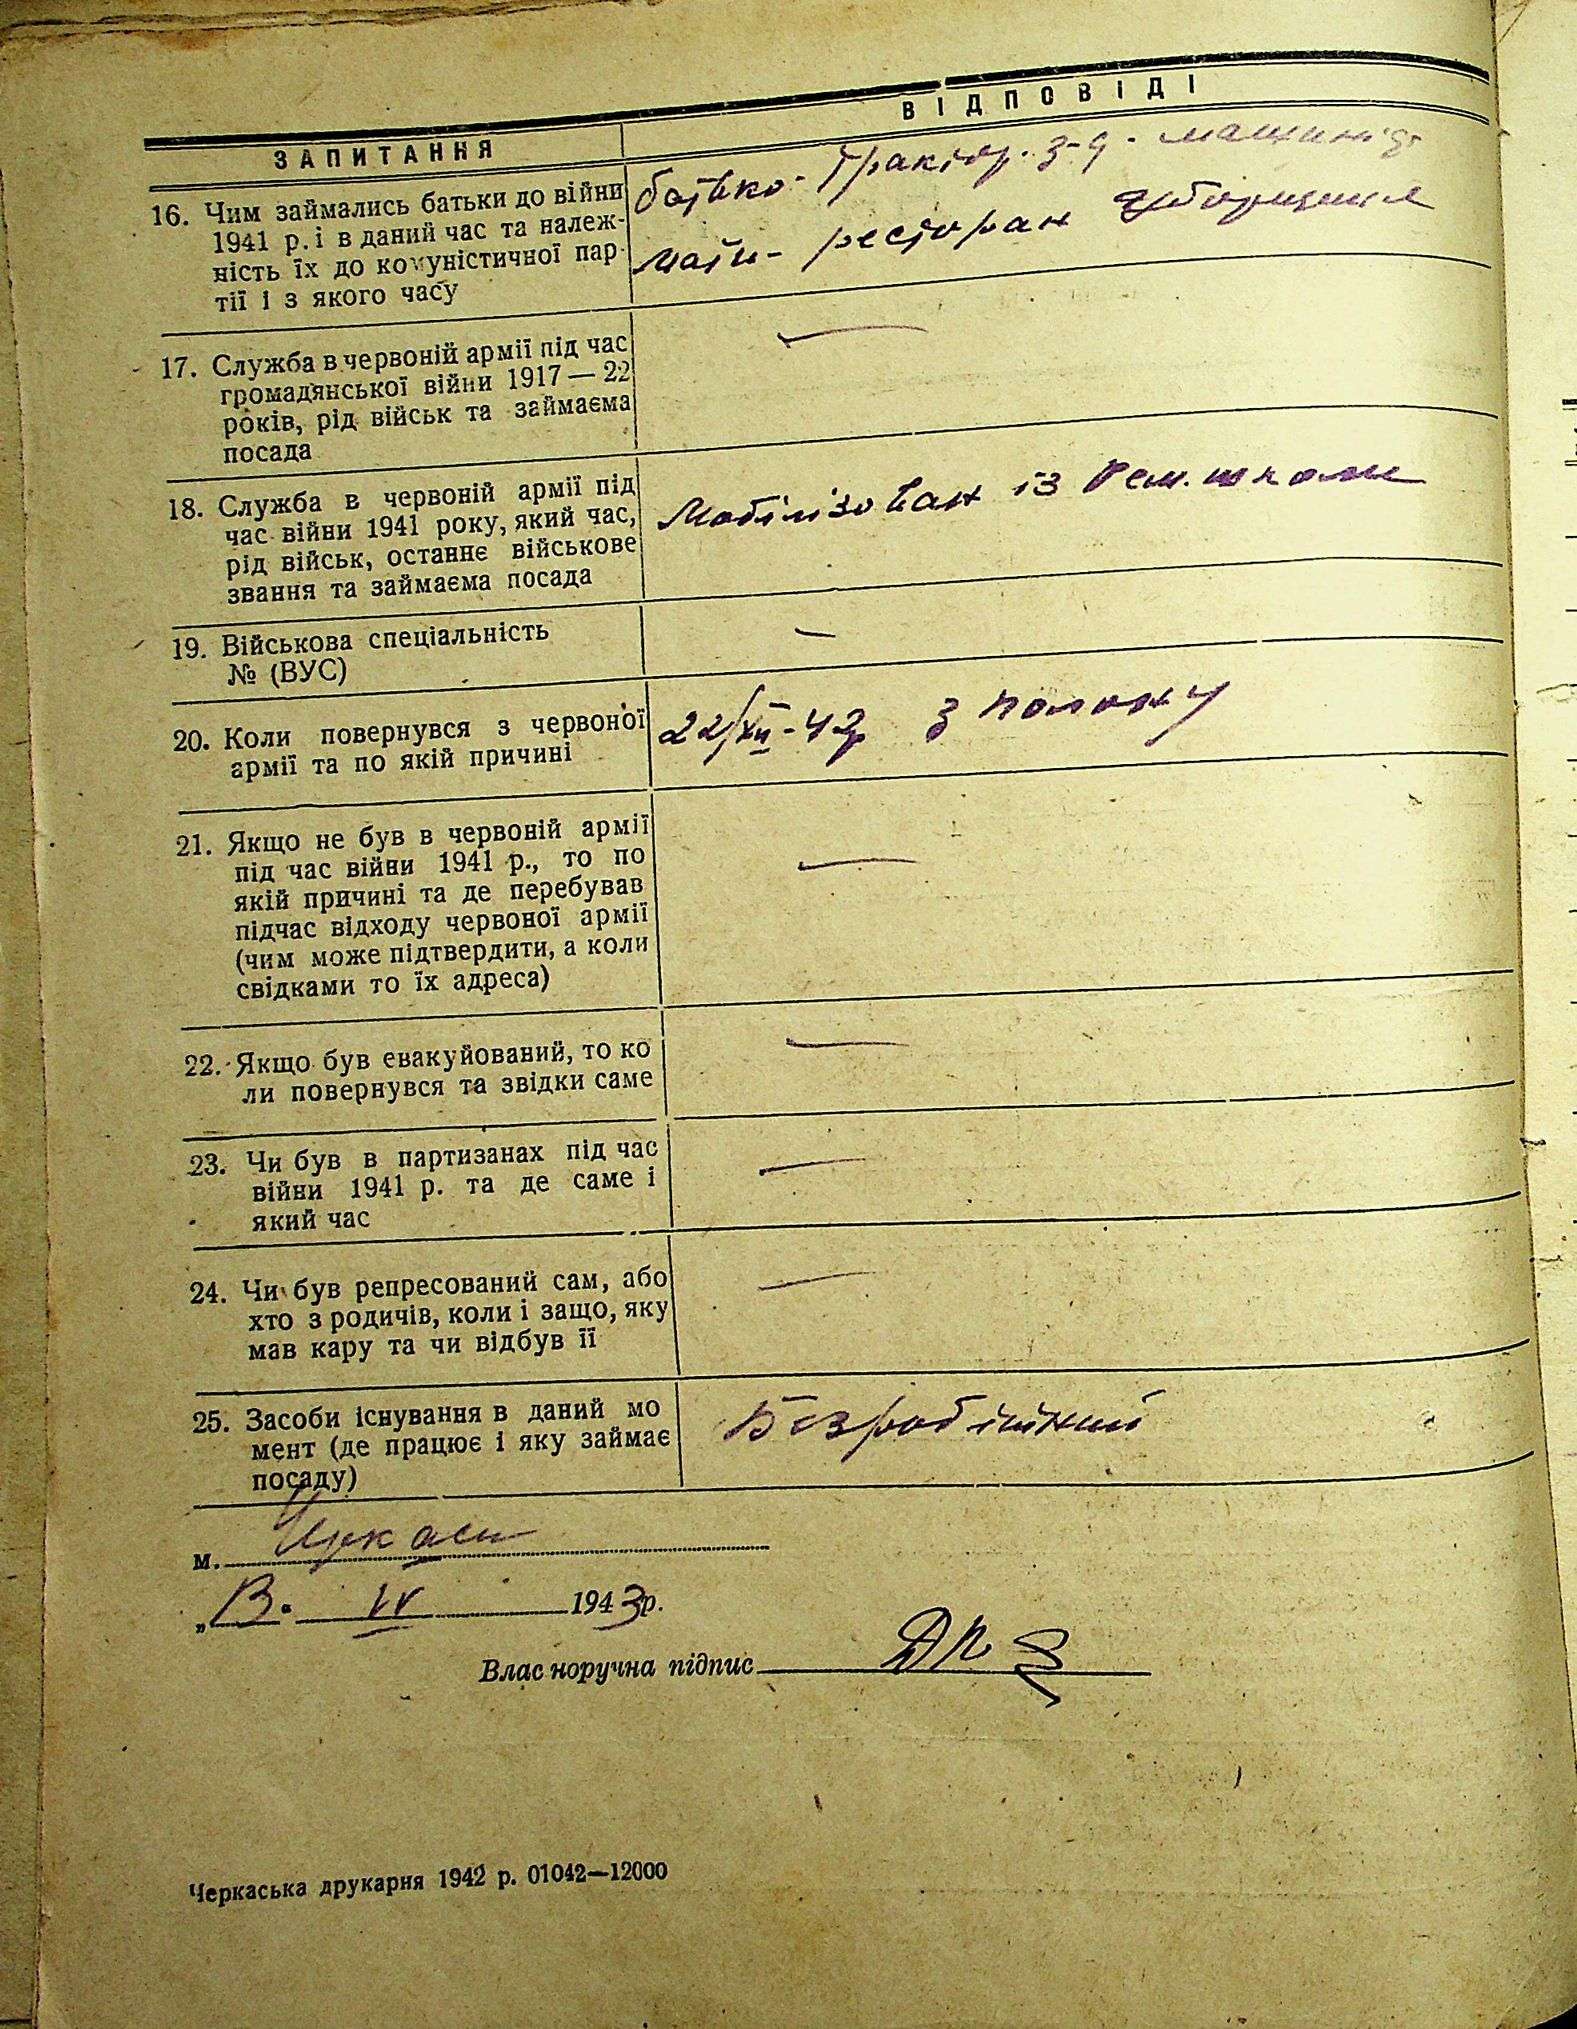 ЗАПИТАННЯ
ВІДПОВІДІ
16. Чим займались батьки до війни
1941 р. і в даний час та належ-
ність їх до комуністичної пар-
тії і з якого часу
батько - Трактор. з-д. машиніст
мати - ресторан уборщиця
17. Служба в червоній армії під час
громадянської війни 1917 — 22
років, рід військ та займаєма
посада
—
18. Служба в червоній армії під
час війни 1941 року, який час,
рід військ, останнє військове
звання та займаєма посада
Мобілізован із Рем. школи
19. Військова спеціальність
№ (ВУС)
—
20. Коли повернувся з червоної
армії та по якій причині
22/XII-42р з полону
21. Якщо не був в червоній армії
під час війни 1941 р., то по
якій причині та де перебував
підчас відходу червоної армії
(чим може підтвердити, а коли
свідками то їх адреса)
—
22. Якщо був евакуйований, то ко
ли повернувся та звідки саме
—
23. Чи був в партизанах під час
війни 1941 р. та де саме і
який час
—
24. Чи був репресований сам, або
хто з родичів, коли і защо, яку
мав кару та чи відбув її
—
25. Засоби існування в даний мо
мент (де працює і яку займає
посаду)
Безробітний
м. Черкаси
„13. IV 1943р.
Власноручна підпис
Черкаська друкарня 1942 р. 01042—12000